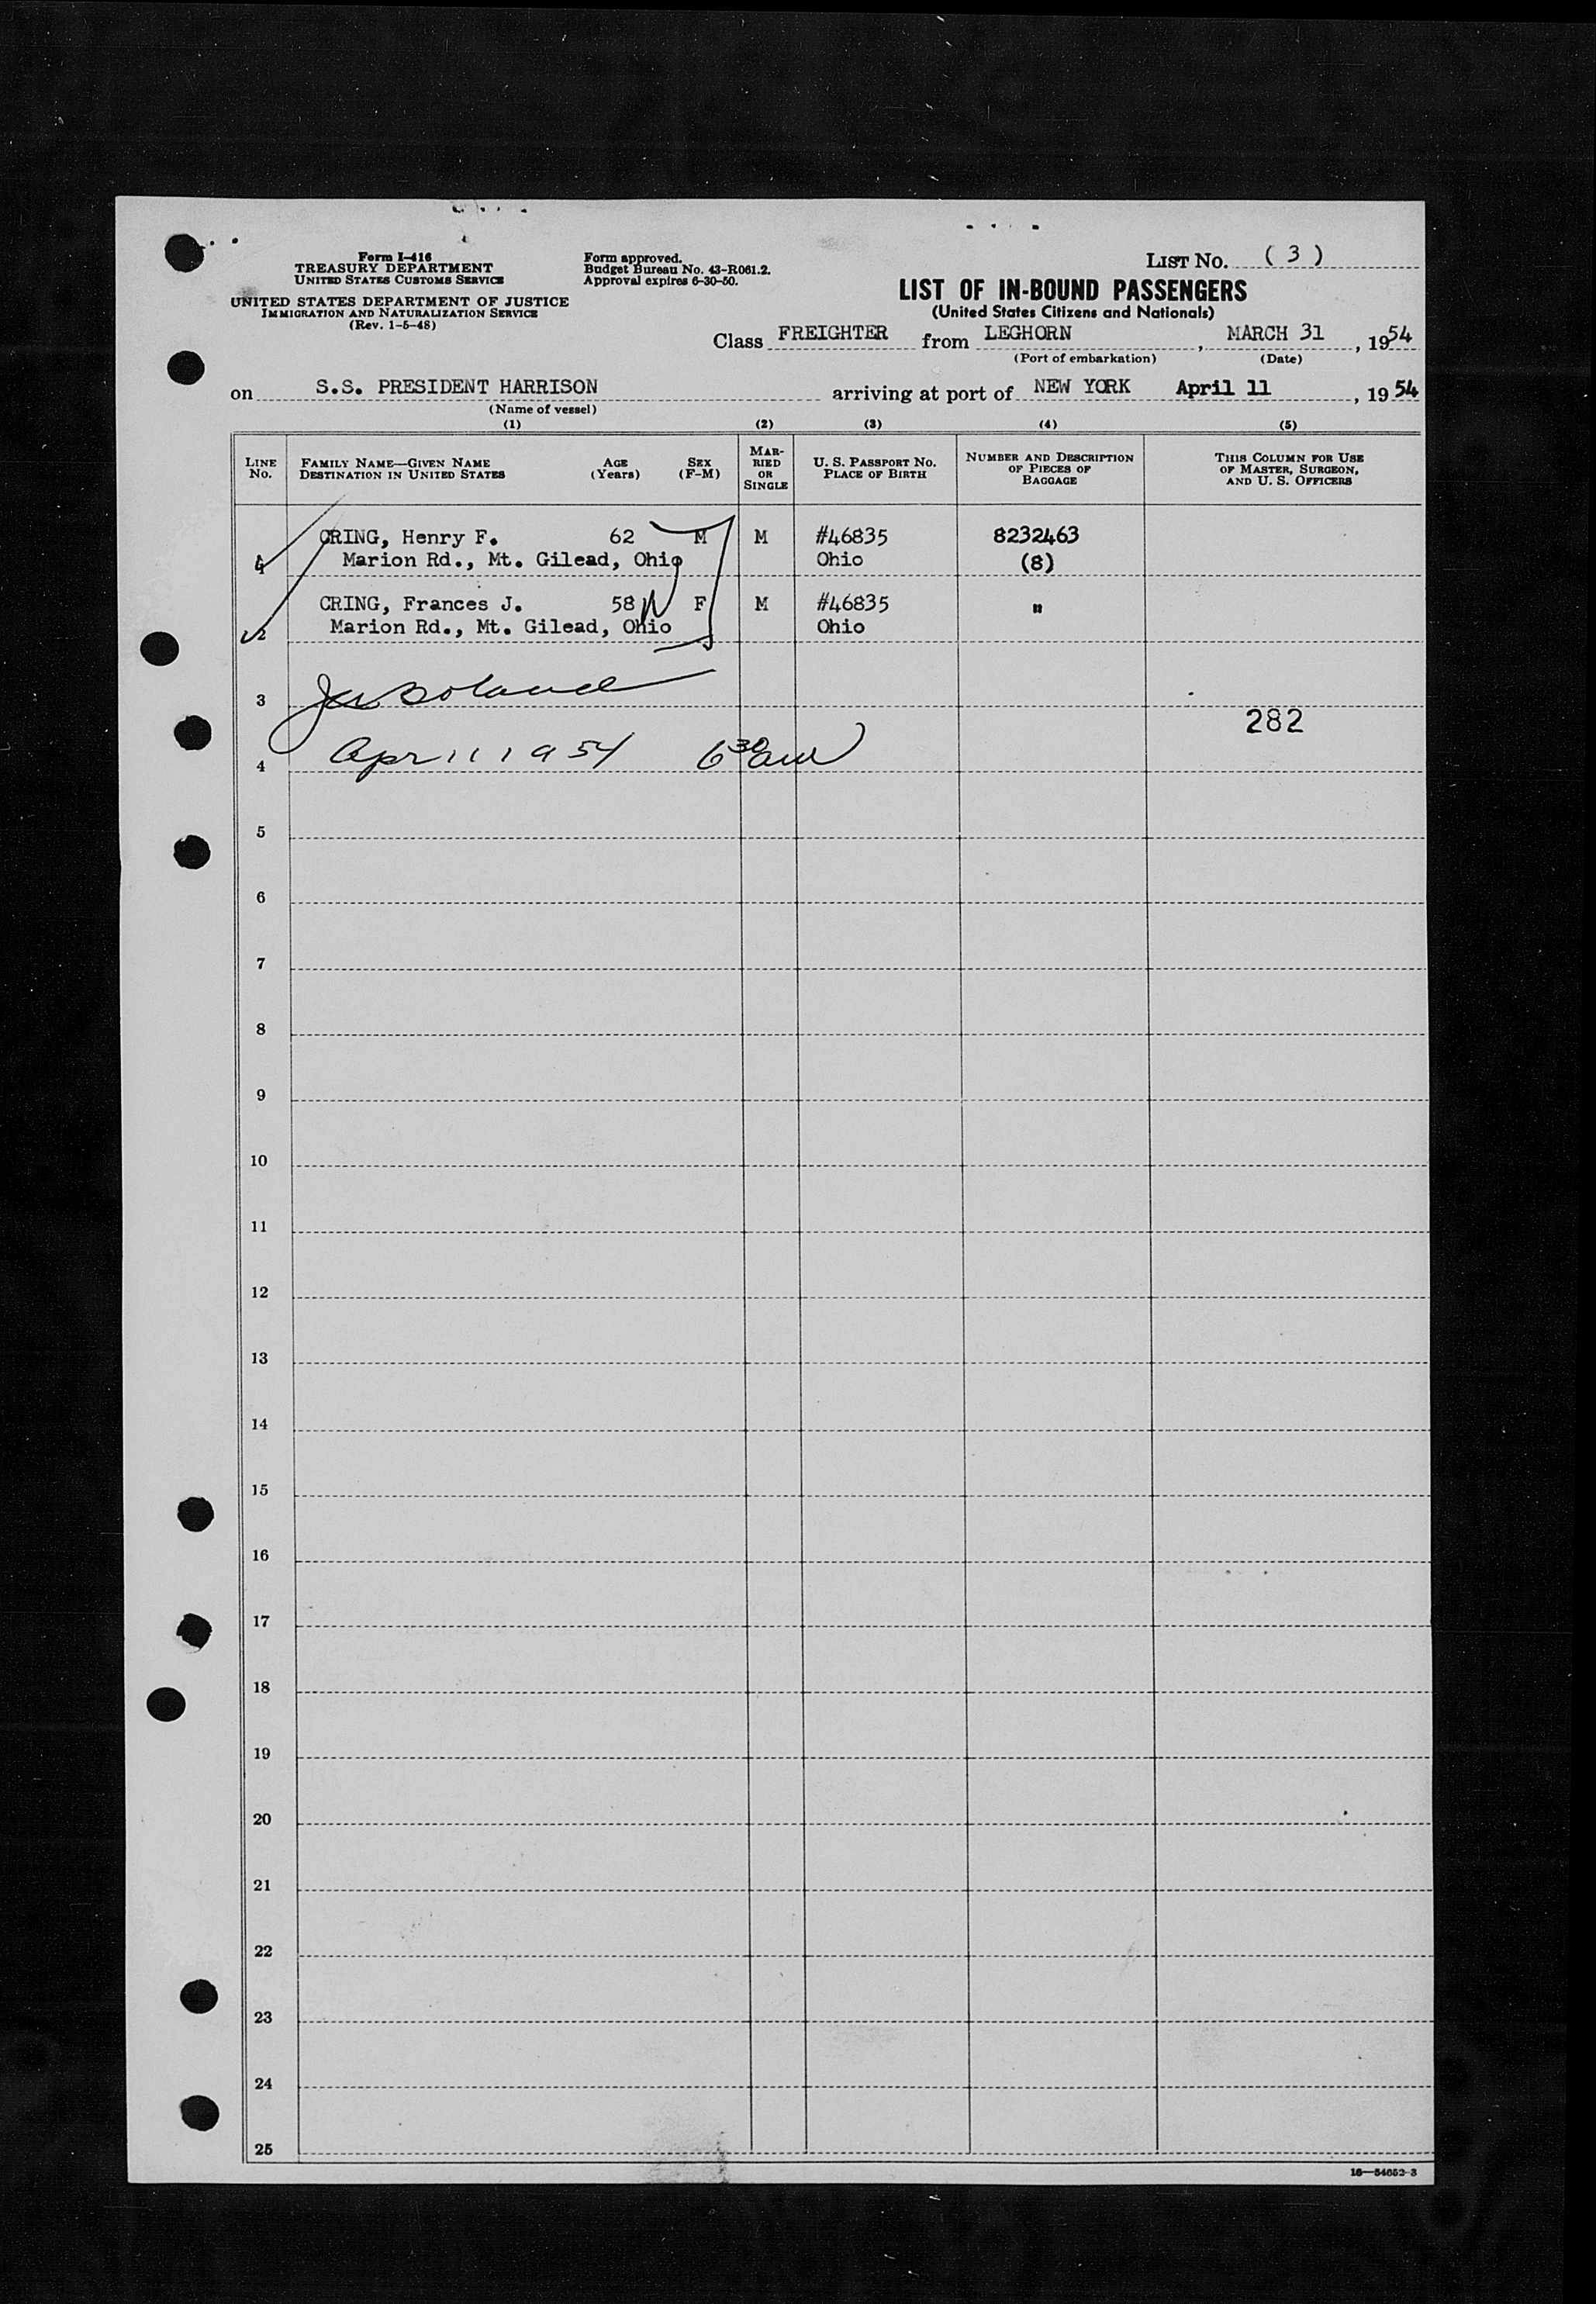 Form I-416
TREASURY DEPARTMENT
UNITED STATES CUSTOMS SERVICE
UNITED STATES DEPARTMENT OF JUSTICE
IMMIGRATION AND NATURALIZATION SERVICE
(Rev. 1-5-48)
Form approved.
Budget Bureau No. 43-R061.2.
Approval expires 6-30-50.
LIST NO. ( 3 )
LIST OF IN-BOUND PASSENGERS
(United States Citizens and Nationals)
Class FREIGHTER from LEGHORN , MARCH 31 , 1954
(Port of embarkation) (Date)
on S.S. PRESIDENT HARRISON arriving at port of NEW YORK April 11 , 1954
(Name of vessel)
(1) (2) (3) (4) (5)
LINE NO.
FAMILY NAME—GIVEN NAME
DESTINATION IN UNITED STATES
AGE
(Years)
SEX
(F-M)
MAR-
RIED
OR
SINGLE
U. S. PASSPORT NO.
PLACE OF BIRTH
NUMBER AND DESCRIPTION
OF PIECES OF
BAGGAGE
THIS COLUMN FOR USE
OF MASTER, SURGEON,
AND U. S. OFFICERS
CRING, Henry F. 62 M M #46835 8232463
1 Marion Rd., Mt. Gilead, Ohio Ohio (8)
CRING, Frances J. 58 F M #46835 "
2 Marion Rd., Mt. Gilead, Ohio Ohio
3
282
4 Apr 11 1954 6 30 am
5
6
7
8
9
10
11
12
13
14
15
16
17
18
19
20
21
22
23
24
25
16—54652-3